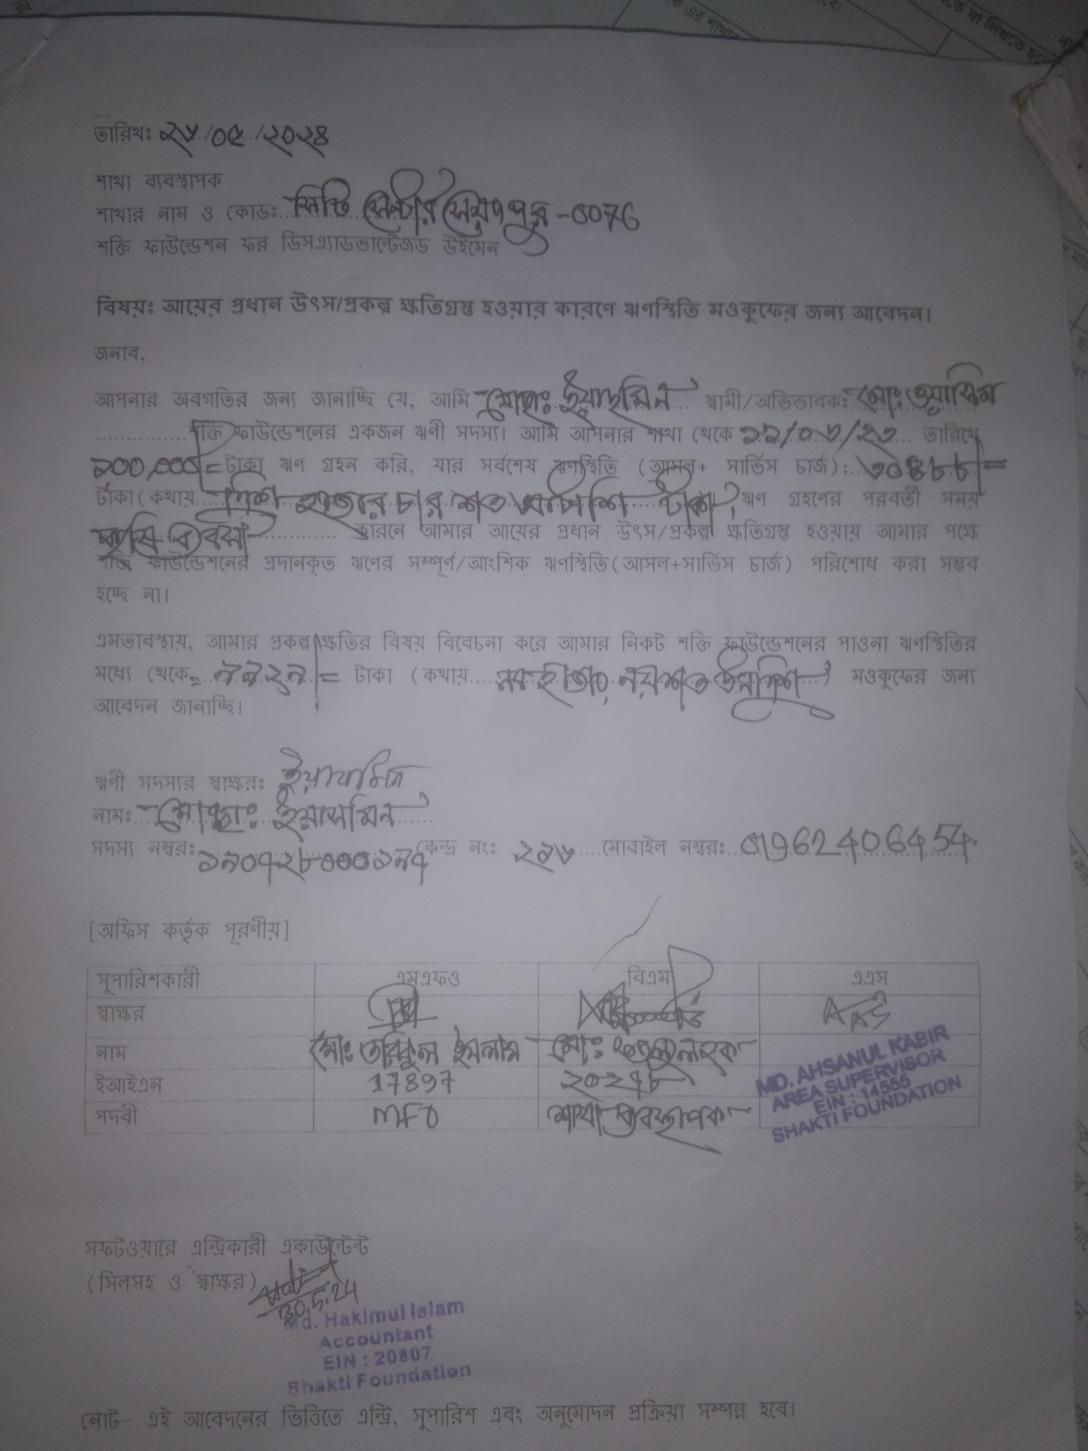 তারিখঃ ২৮/০৫/২০২৪
শাখা ব্যবস্থাপক
শাখার নাম ও কোডঃ সিটি সেন্টার সৈয়দপুর-0076
শক্তি ফাউন্ডেশন ফর ডিসএ্যাডভান্টেজড উইমেন
বিষয়ঃ আয়ের প্রধান উৎস/প্রকল্প ক্ষতিগ্রস্ত হওয়ার কারণে ঋণস্থিতি মওকুফের জন্য আবেদন।
জনাব,
আপনার অবগতির জন্য জানাচ্ছি যে, আমি মোছাঃ ইয়াছমিন স্বামী/অভিভাবকঃ মোঃ ওয়াসিম
শক্তি ফাউন্ডেশনের একজন ঋণী সদস্য। আমি আপনার শাখা থেকে তারিখে
১০০,০০০/= টাকা ঋণ গ্রহন করি, যার সর্বশেষ ঋণস্থিতি (আসল+ সার্ভিস চার্জ):
টাকা (কথায় হাজার চার শত টাকা) ঋণ গ্রহণের পরবর্তী সময়
কৃষি ব্যবসা কারনে আমার আয়ের প্রধান উৎস/প্রকল্প ক্ষতিগ্রস্ত হওয়ায় আমার পক্ষে
শক্তি ফাউন্ডেশনের প্রদানকৃত ঋণের সম্পূর্ণ/আংশিক ঋণস্থিতি(আসল+সার্ভিস চার্জ) পরিশোধ করা সম্ভব
হচ্ছে না।
এমতাবস্থায়, আমার প্রকল্প ক্ষতির বিষয় বিবেচনা করে আমার নিকট শক্তি ফাউন্ডেশনের পাওনা ঋণস্থিতির
মধ্যে থেকে ৯৯২৯/= টাকা (কথায় নয় হাজার নয়শত উনত্রিশ) মওকুফের জন্য
আবেদন জানাচ্ছি।
ঋণী সদস্যর স্বাক্ষরঃ ইয়াসমিন
নামঃ মোছাঃ ইয়াসমিন
সদস্য নম্বরঃ কেন্দ্র নং: মোবাইল নম্বরঃ 01962406454
[অফিস কর্তৃক পূরণীয়]
সুপারিশকারী এমএফও বিএম এএস
স্বাক্ষর
নাম মোঃ তরিকুল ইসলাম মোঃ ফজলুল হক
ইআইএন 17897 ২০২৭৮
পদবী MFO শাখা ব্যবস্থাপক
MD. AHSANUL KABIR
AREA SUPERVISOR
EIN : 14555
SHAKTI FOUNDATION
সফটওয়ারে এন্ট্রিকারী একাউন্টেন্ট
(সিলসহ ও স্বাক্ষর)
30.5.24
Md. Hakimul Islam
Accountant
EIN : 20807
Shakti Foundation
নোট- এই আবেদনের ভিত্তিতে এন্ট্রি, সুপারিশ এবং অনুমোদন প্রক্রিয়া সম্পন্ন হবে।